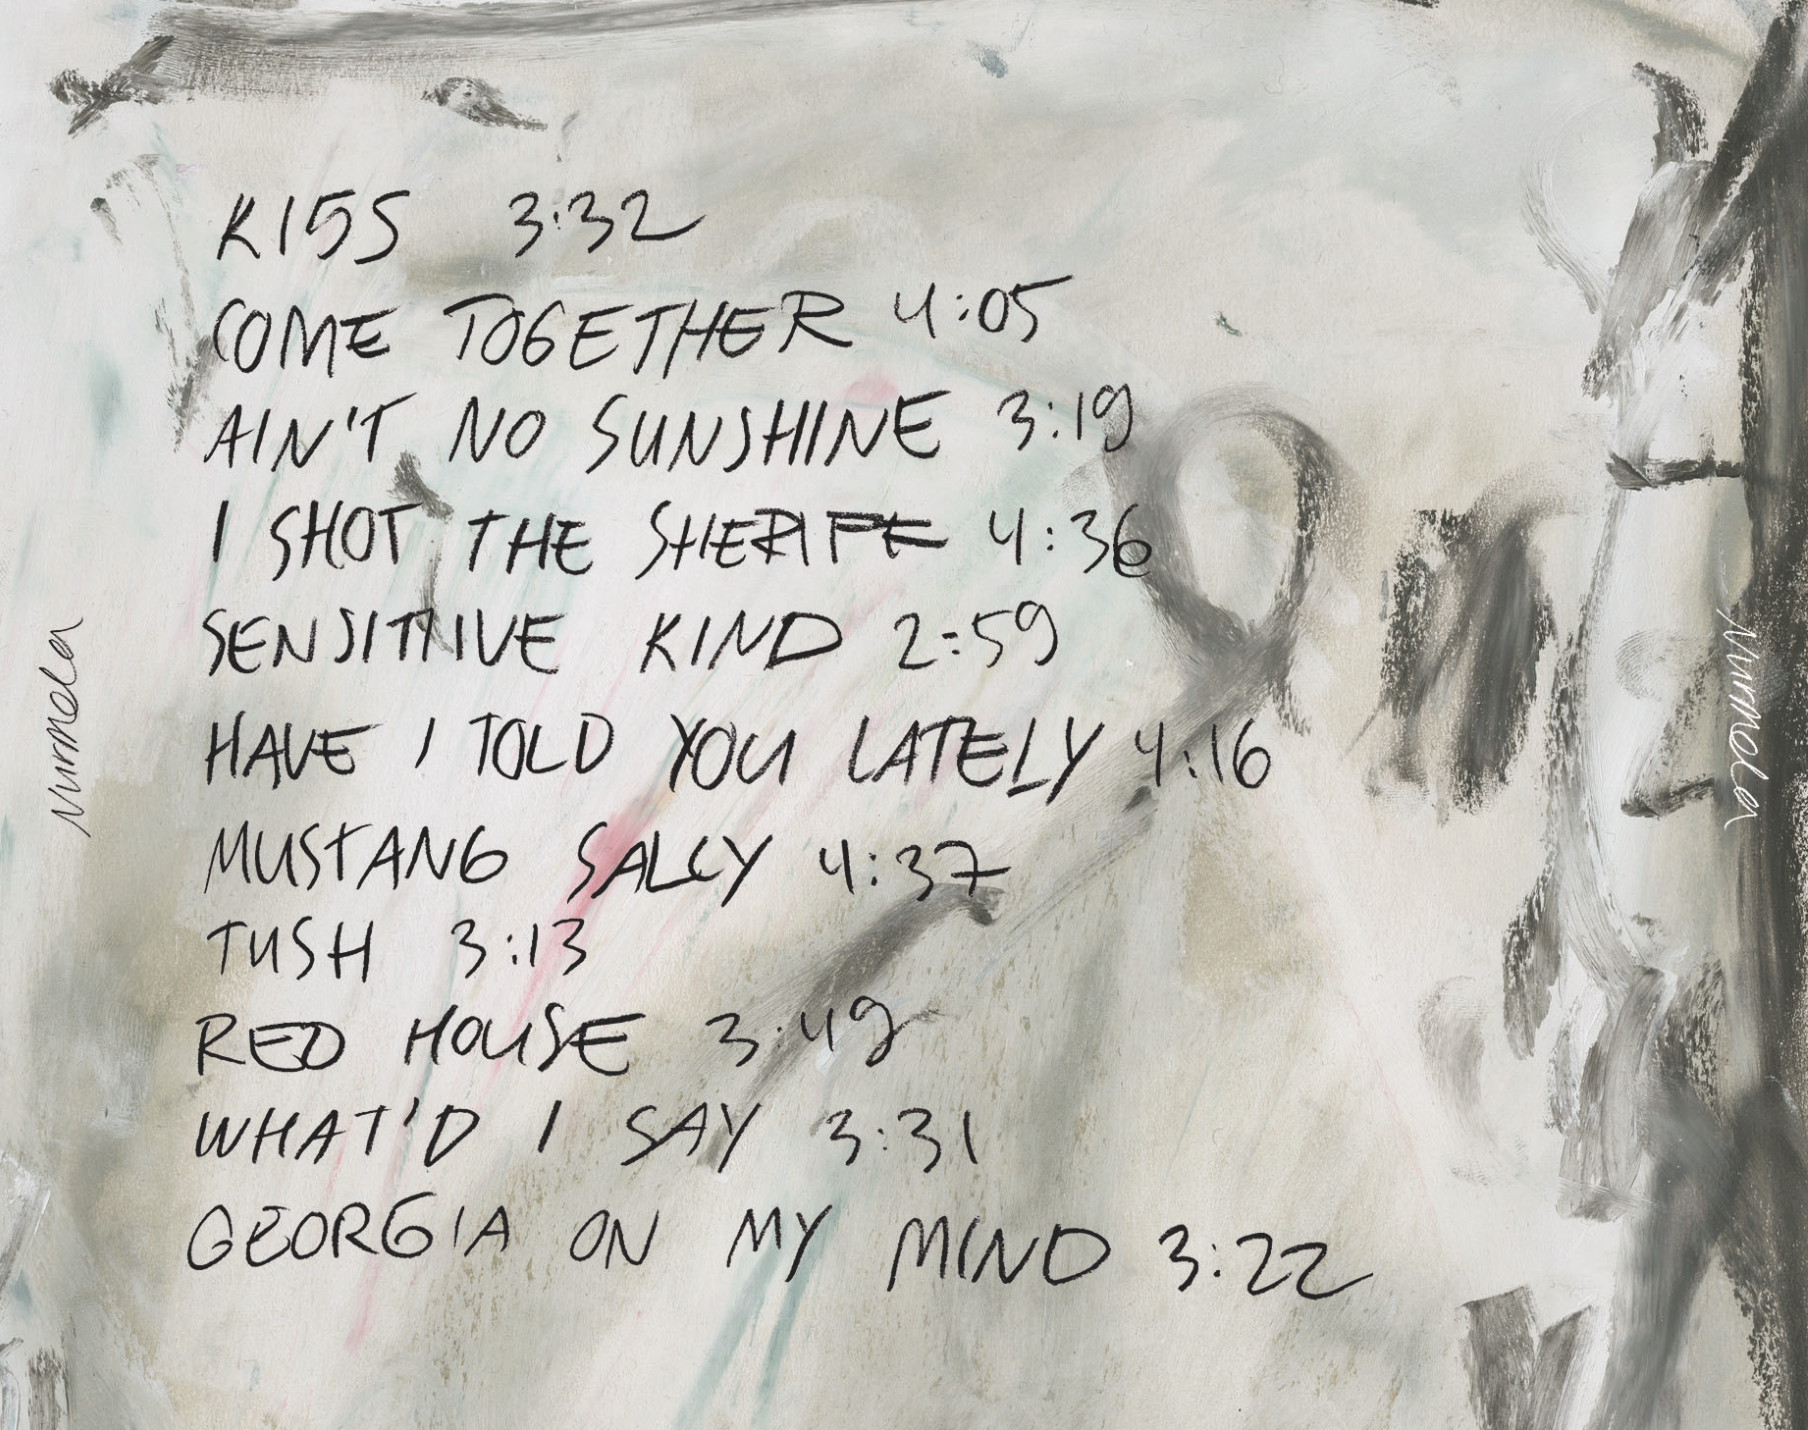 KISS 3:32
COME TOGETHER 4:05
AIN'T NO SUNSHINE 3:19
I SHOT THE SHERIFF 4:36
SENSITIVE KIND 2:59
HAVE I TOLD YOU LATELY 4:16
MUSTANG SALLY 4:37
TUSH 3:13
RED HOUSE 3:49
WHAT'D I SAY 3:31
GEORGIA ON MY MIND 3:22
Nurmela
Nurmela